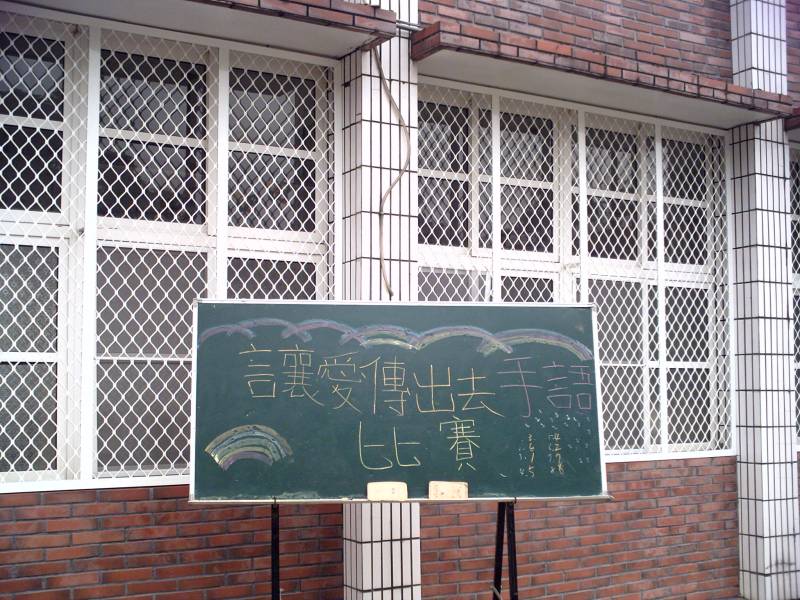 讓愛傳出去手語
比賽